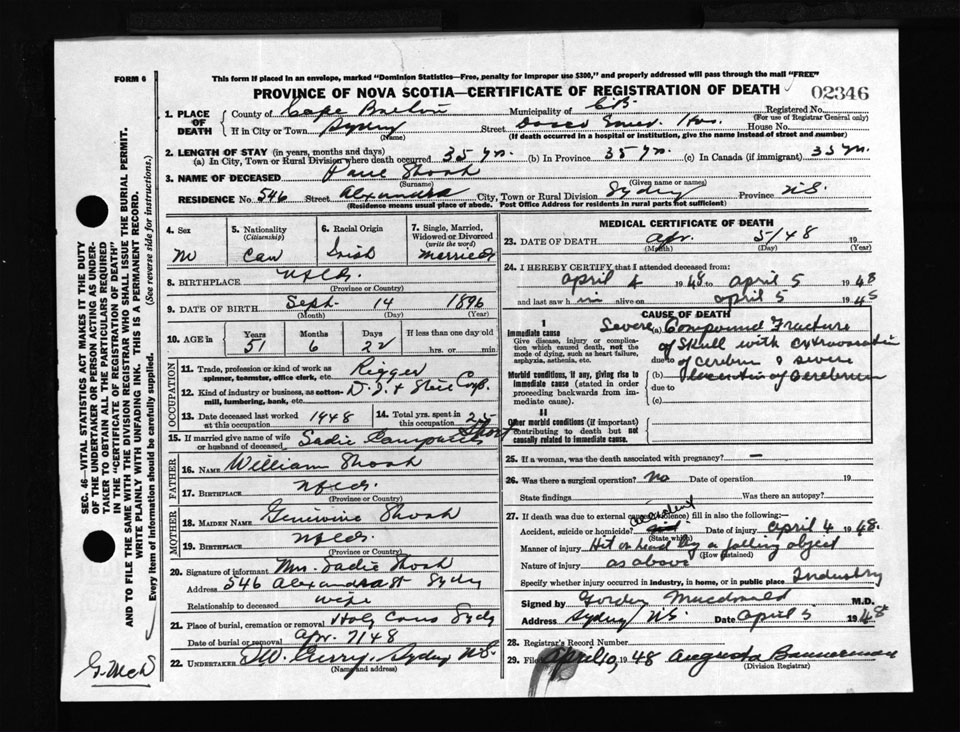 FORM 6
This form if placed in an envelope, marked "Dominion Statistics—Free, penalty for improper use $300," and properly addressed will pass through the mail "FREE"
PROVINCE OF NOVA SCOTIA—CERTIFICATE OF REGISTRATION OF DEATH
02346
1. PLACE OF DEATH
County of Cape Breton Municipality of C.B. Registered No.
(For use of Registrar General only)
If in City or Town Sydney Street Dosco Emer. Hos. House No.
(Name) (If death occurred in a hospital or institution, give the name instead of street and number)
2. LENGTH OF STAY (in years, months and days)
(a) In City, Town or Rural Division where death occurred 35 yrs. (b) In Province 35 yrs. (c) In Canada (if immigrant) 35 yrs.
3. NAME OF DECEASED Paul Shoah
(Surname) (Given name or names)
RESIDENCE No. 546 Street Alexandra City, Town or Rural Division Sydney Province N.S.
(Residence means usual place of abode. Post Office Address for residents in rural parts not sufficient)
4. Sex
M
5. Nationality
(Citizenship)
Can
6. Racial Origin
Irish
7. Single, Married, Widowed or Divorced
(write the word)
Married
8. BIRTHPLACE Nfld.
(Province or Country)
9. DATE OF BIRTH Sept. 14 1896
(Month) (Day) (Year)
10. AGE in Years Months Days If less than one day old
51 6 22 hrs. or min.
OCCUPATION
11. Trade, profession or kind of work as spinner, teamster, office clerk, etc. Rigger
12. Kind of industry or business, as cotton-mill, lumbering, bank, etc. D. I. & Steel Corp.
13. Date deceased last worked at this occupation 1948
14. Total yrs. spent in this occupation 25
15. If married give name of wife or husband of deceased Sadie
FATHER
16. NAME William Shoah
17. BIRTHPLACE Nfld.
(Province or Country)
MOTHER
18. MAIDEN NAME Genivive Shoah
19. BIRTHPLACE Nfld.
(Province or Country)
20. Signature of informant Mrs. Sadie Shoah
Address 546 Alexandra St Sydney
Relationship to deceased wife
21. Place of burial, cremation or removal Holy Cross Sydney
Date of burial or removal Apr. 7/48
22. UNDERTAKER T.W. Curry, Sydney N.S.
(Name and address)
MEDICAL CERTIFICATE OF DEATH
23. DATE OF DEATH Apr. 5/48 19
(Month) (Day) (Year)
24. I HEREBY CERTIFY that I attended deceased from:
April 4 1948 to April 5 1948
and last saw him alive on April 5 1948
CAUSE OF DEATH
I
Immediate cause
Give disease, injury or complication which caused death, not the mode of dying, such as heart failure, asphyxia, asthenia, etc.
Severe (a) Compound Fracture
of Skull with extravasation
due to of Cerebrum & severe
Morbid conditions, if any, giving rise to immediate cause (stated in order proceeding backwards from immediate cause).
(b) of Cerebrum
due to
(c)
II
Other morbid conditions (if important) contributing to death but not causally related to immediate cause.
25. If a woman, was the death associated with pregnancy? —
26. Was there a surgical operation? No Date of operation 19
State findings Was there an autopsy?
27. If death was due to external causes (violence) fill in also the following:
Accident, suicide or homicide? accident Date of injury April 4 1948.
(State which)
Manner of injury Hit on head by a falling object
(How sustained)
Nature of injury as above
Specify whether injury occurred in industry, in home, or in public place Industry
Signed by Gordon Macdonald M.D.
Address Sydney N.S. Date April 5 1948
28. Registrar's Record Number
29. Filed April 10, 1948 Augusta Bannerman
(Division Registrar)
SEC. 46—VITAL STATISTICS ACT MAKES IT THE DUTY
OF THE UNDERTAKER OR PERSON ACTING AS UNDER-
TAKER TO OBTAIN ALL THE PARTICULARS REQUIRED
IN THE "CERTIFICATE OF REGISTRATION OF DEATH"
AND TO FILE THE SAME WITH THE DIVISION REGISTRAR WHO SHALL ISSUE THE BURIAL PERMIT.
WRITE PLAINLY WITH UNFADING INK. THIS IS A PERMANENT RECORD.
Every item of information should be carefully supplied. (See reverse side for instructions.)
G. McD